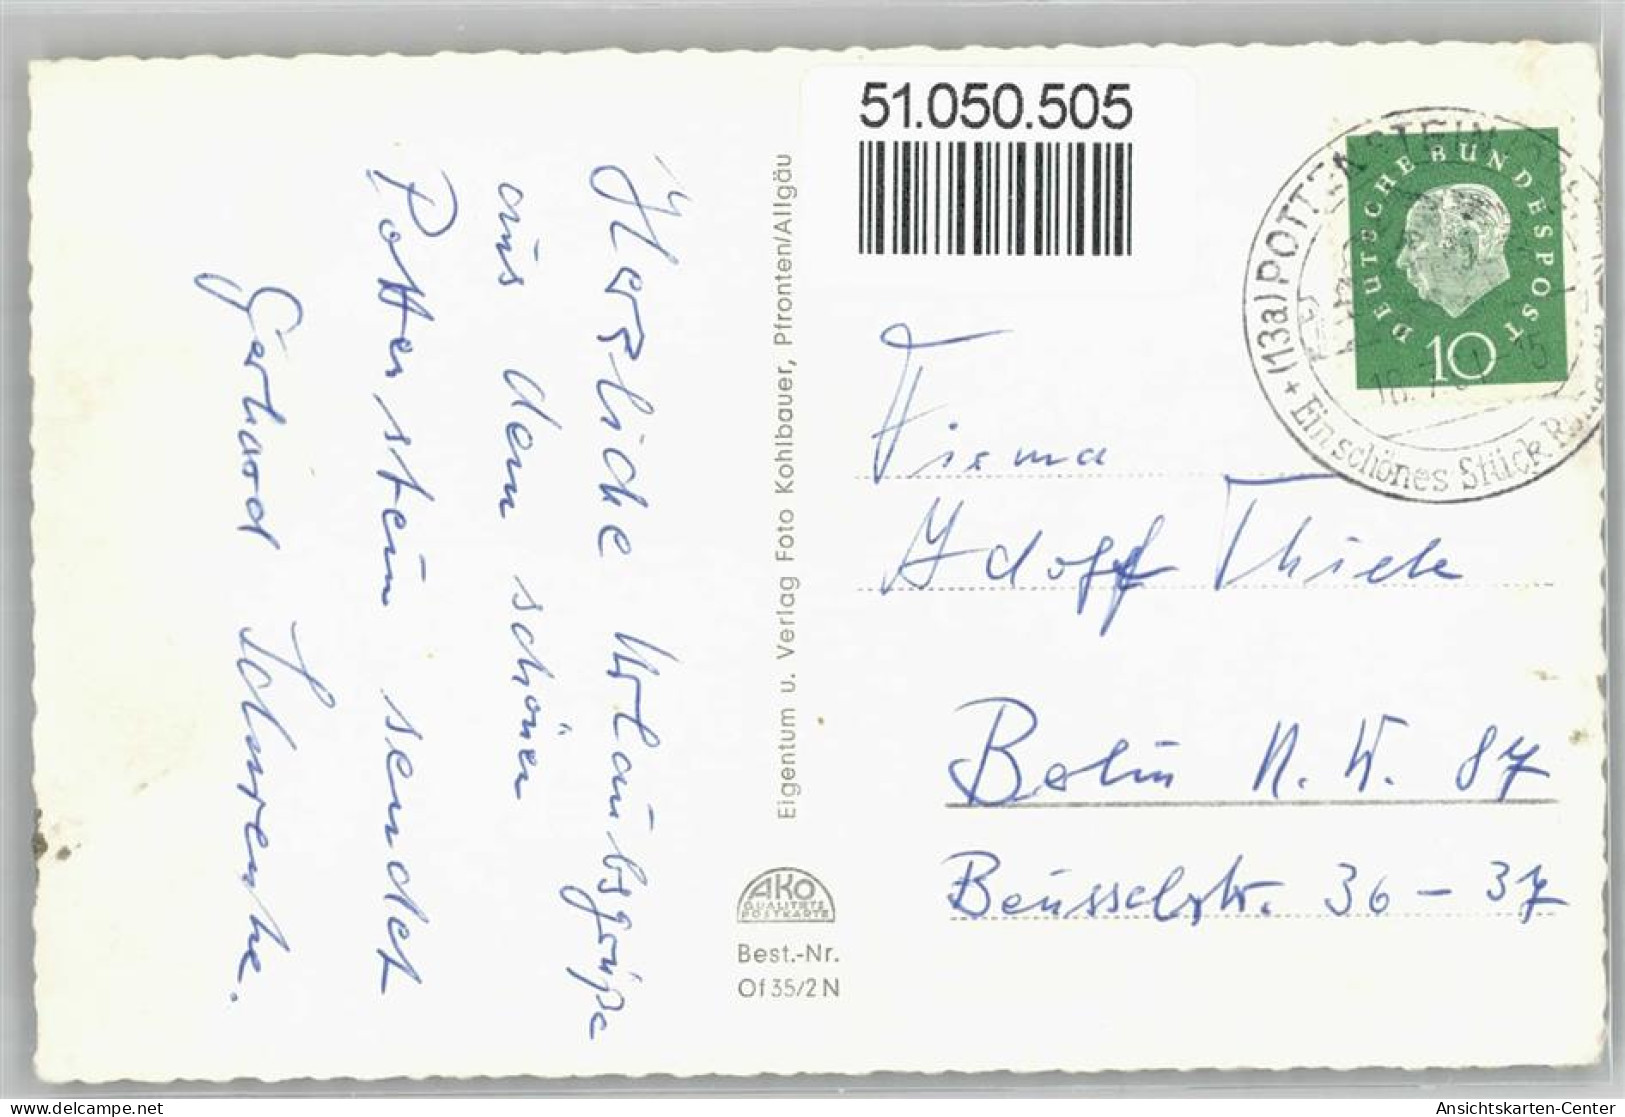 51.050.505
Herzliche Urlaubsgrüße
aus dem schönen
Pottenstein sendet
Gerhard
Eigentum u. Verlag Foto Kohlbauer, Pfronten/Allgäu
AKO
QUALITÄTS
POSTKARTE
Best.-Nr.
Of 35/2 N
(13a) POTTENSTEIN
Ein schönes Stück
DEUTSCHE BUNDESPOST
10
Firma
Adolf Thiele
Berlin N.W. 87
Beusselstr. 36 - 37
delcampe.net
Ansichtskarten-Center